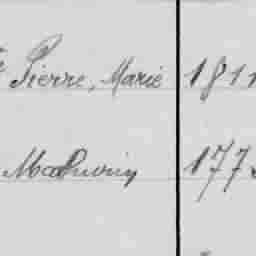 Pierre, Marie 181
Mathurin 177